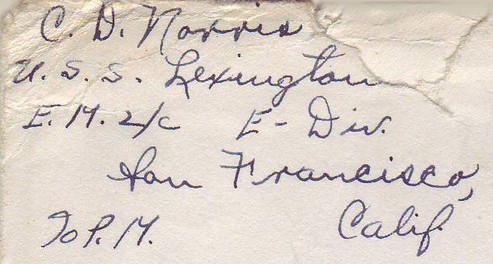 C. D. Norris
U. S. S. Lexington
E. M. 2/c E - Div.
San Francisco,
℅ P. M. Calif.